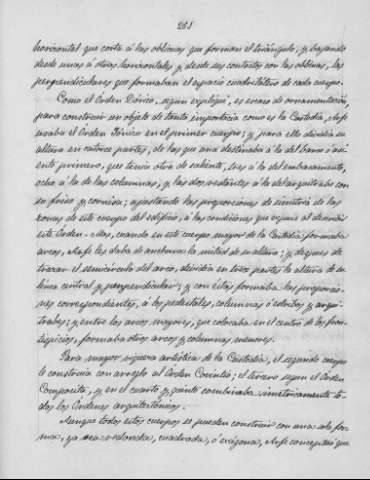 281
horizontal que corta á las oblicuas que forman el triángulo, y bajando
desde unas á otras horizontales y desde sus contactos con las oblicuas, las
perpendiculares que formaban el espacio cuadrilátero de cada cuerpo.
Como el Orden Dórico, segun expliqué, es escaso de ornamentación,
para construir un objeto de tanta importancia como es la Custodia, Arfe
usaba el Orden Jónico en el primer cuerpo; y para ello dividia su
altura en catorce partes, de las que una destinaba á la del banco ó asi
ento primero, que tenia otra de saliente, tres á la del embasamento,
ocho á la de las columnas, y las dos restantes á la del arquitrabe con
su friso y cornisa; ajustando las proporciones de simetria de las
zonas de este cuerpo del edificio, á las condiciones que expuse al describir
este Orden. Mas, cuando en este cuerpo mayor de la Custodia formaba
arcos, Arfe les daba de anchura la mitad de su altura; y despues de
trazar el semicirculo del arco, dividia en tres partes la altura de su
linea central y perpendicular; y con éstas formaba las proporcio
nes correspondientes, á los pedestales, columnas ó estribos y arqui
trabes; y entre los arcos mayores, que colocaba en el centro de los fron
tispicios, formaba otros arcos y columnas menores.
Para mayor riqueza artística de la Custodia, el segundo cuerpo
le construia con arreglo al Orden Corintio; el tercero segun el Orden
Compósito, y en el cuarto y quinto combinaba simetricamente to
dos los Ordenes arquitectónicos.
Aunque todos estos cuerpos se pueden construir con una sola for
ma, ya sea redonda, cuadrada, ó exágona, Arfe que